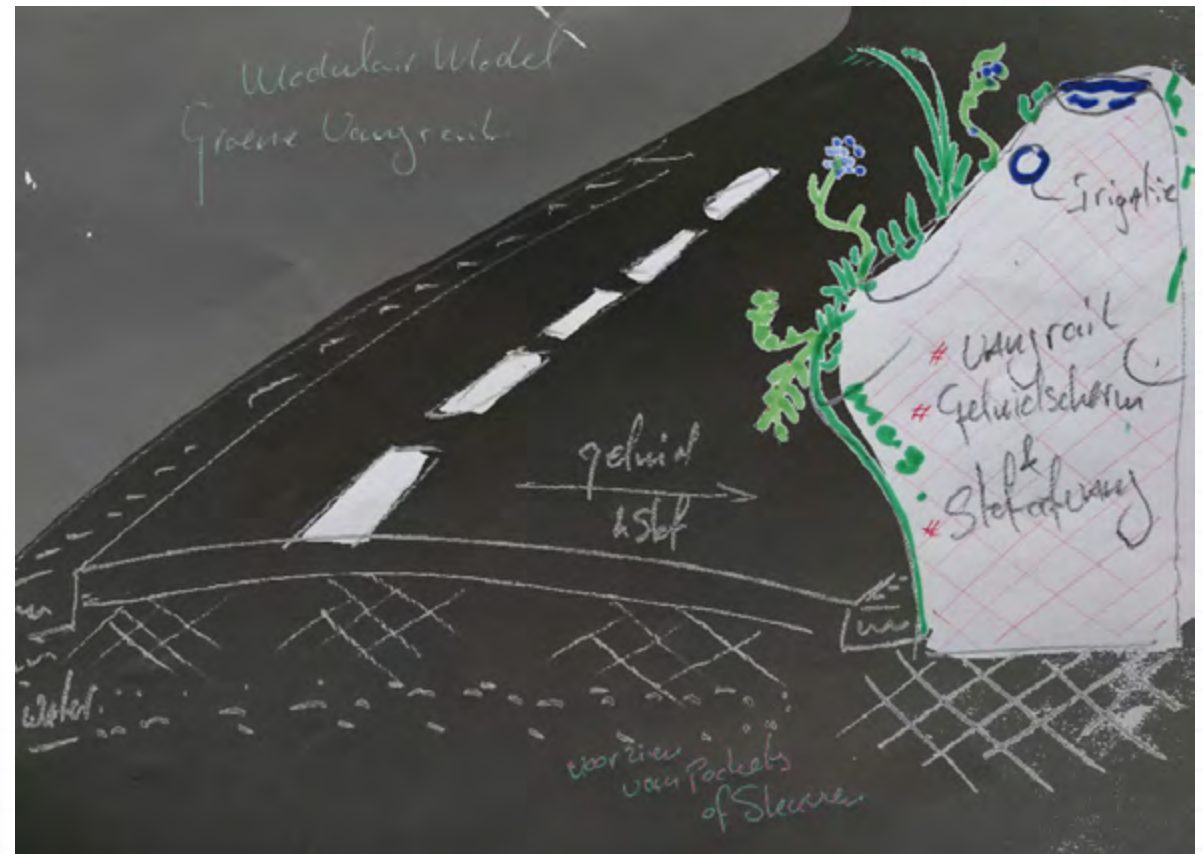 Modulair Model
Groene Vangrail
Irigatie
# Vangrail
# Geluidscherm
&
#
geluid
& Stof
water.
voorzien
van Pockets
of